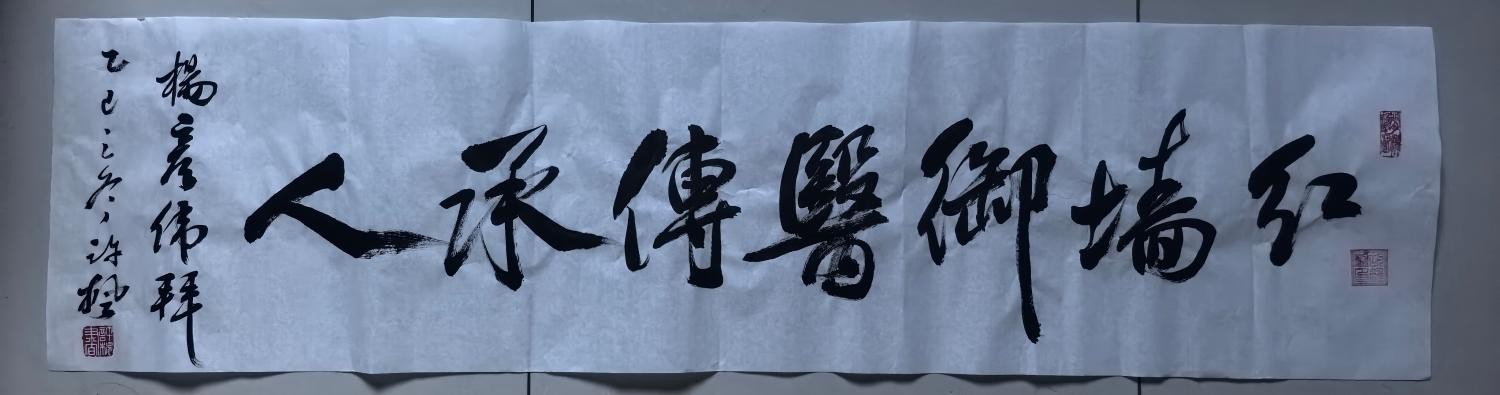 红墙御醫傳承人
楊彦伟拜
乙巳之冬许楓